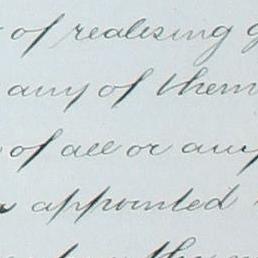 of realising
any of them
of all or any
appointed